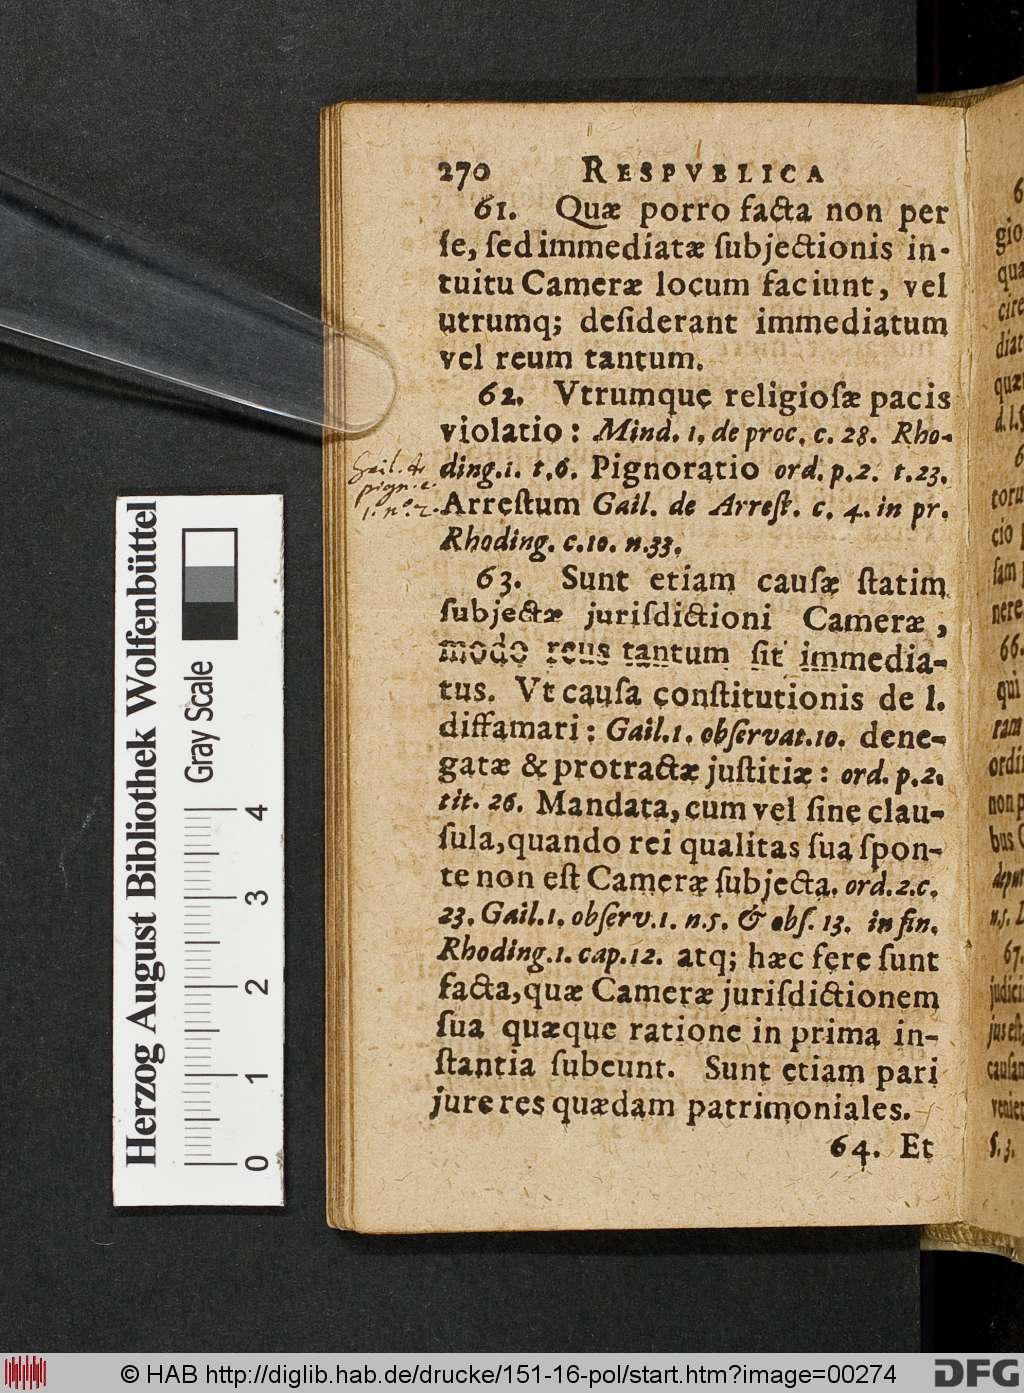 270 RESPVBLICA
61. Quæ porro facta non per
ſe, ſed immediatæ ſubjectionis in-
tuitu Cameræ locum faciunt, vel
utrumq; deſiderant immediatum
vel reum tantum.
62. Vtrumque religioſæ pacis
violatio: Mind. 1. de proc. c. 28. Rho-
ding. 1. t. 6. Pignoratio ord. p. 2. t. 23.
Arreſtum Gail. de Arreſt. c. 4. in pr.
Rhoding. c. 10. n. 33.
Gail. de
pign.
1. n°. 2.
63. Sunt etiam cauſæ ſtatim
ſubjectæ juriſdictioni Cameræ,
modo reus tantum ſit immedia-
tus. Vt cauſa conſtitutionis de l.
diffamari: Gail. 1. obſervat. 10. dene-
gatæ & protractæ juſtitiæ: ord. p. 2.
tit. 26. Mandata, cum vel ſine clau-
ſula, quando rei qualitas ſua ſpon-
te non eſt Cameræ ſubjecta. ord. 2. c.
23. Gail. 1. obſerv. 1. n. 5. & obſ. 13. in fin.
Rhoding. 1. cap. 12. atq; hæc fere ſunt
facta, quæ Cameræ juriſdictionem
ſua quæque ratione in prima in-
ſtantia ſubeunt. Sunt etiam pari
jure res quædam patrimoniales.
64. Et
Herzog August Bibliothek Wolfenbüttel
Gray Scale
0 1 2 3 4
© HAB http://diglib.hab.de/drucke/151-16-pol/start.htm?image=00274
DFG